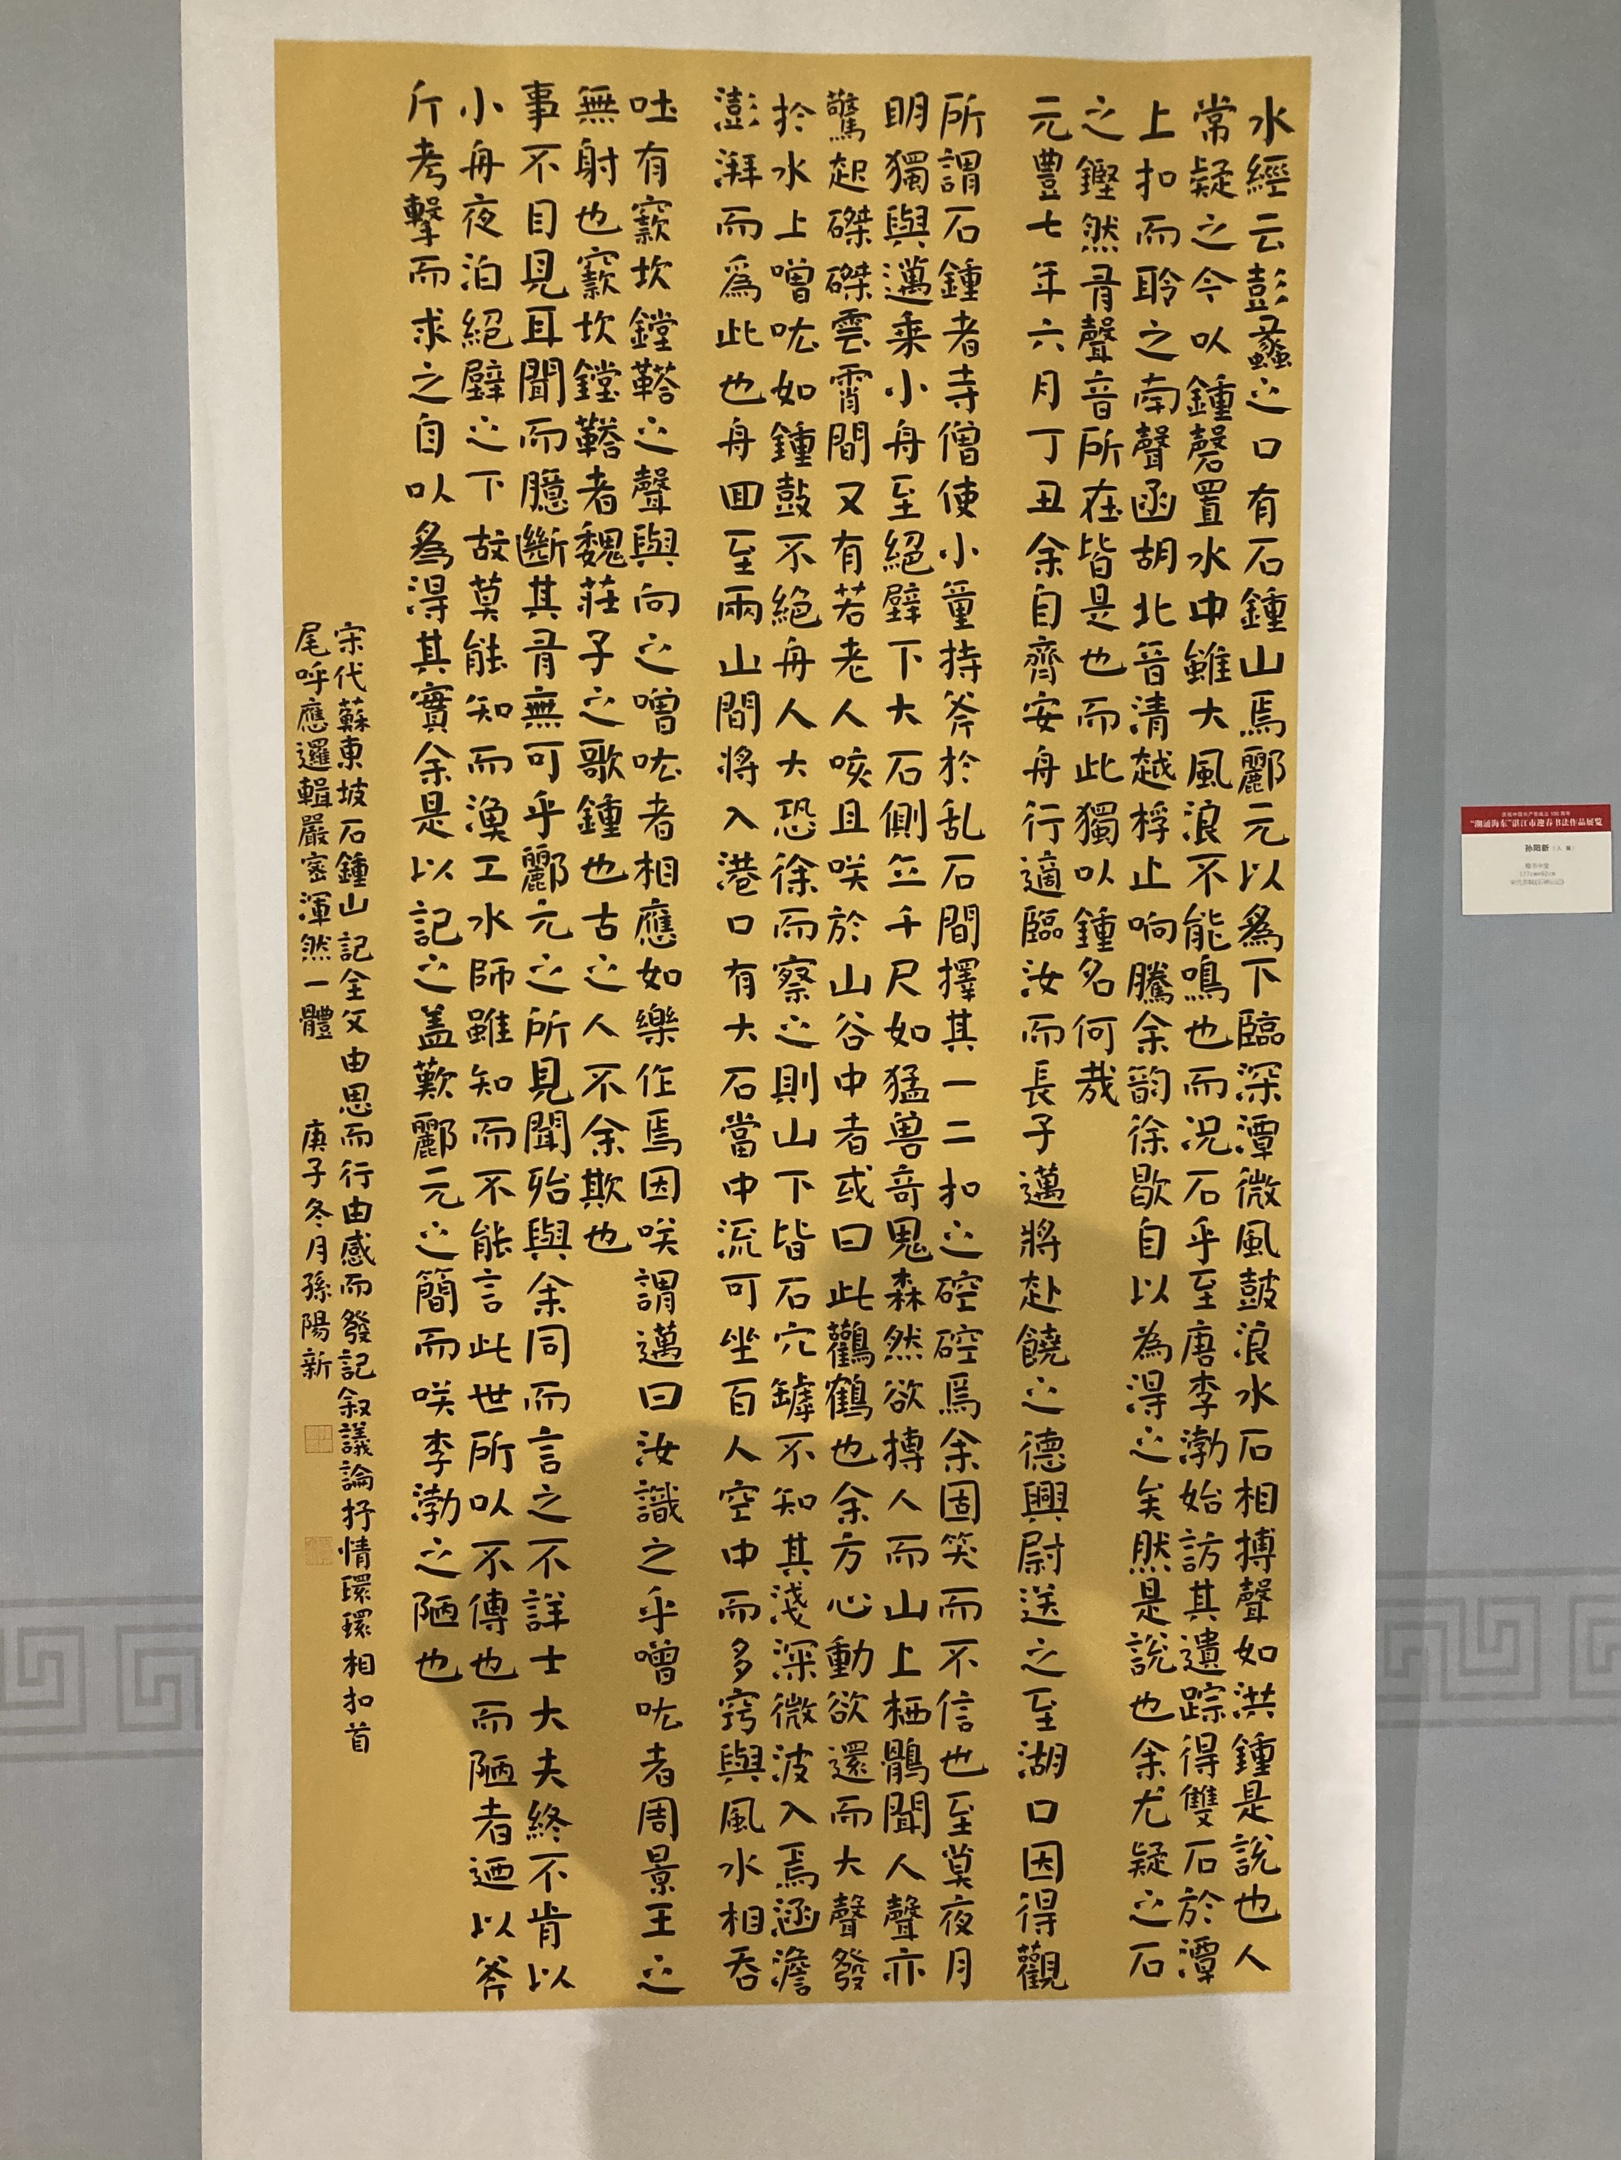 水經云彭蠡之口有石鍾山焉酈元以爲下臨深潭微風鼓浪水石相搏聲如洪鍾是說也人
常疑之今以鍾磬置水中雖大風浪不能鳴也而况石乎至唐李渤始訪其遺踪得雙石於潭
上扣而聆之南聲函胡北音清越桴止响騰余韵徐歇自以為得之矣然是說也余尤疑之石
之鏗然有聲音所在皆是也而此獨以鍾名何哉
元豐七年六月丁丑余自齊安舟行適臨汝而長子邁將赴饒之德興尉送之至湖口因得觀
所謂石鍾者寺僧使小童持斧於乱石間擇其一二扣之硿硿焉余固笑而不信也至莫夜月
明獨與邁乘小舟至絕壁下大石側立千尺如猛兽奇鬼森然欲搏人而山上栖鶻聞人聲亦
驚起磔磔雲霄間又有若老人咳且咲於山谷中者或曰此鸛鶴也余方心動欲還而大聲發
於水上噌吰如鍾鼓不絶舟人大恐徐而察之則山下皆石穴罅不知其淺深微波入焉涵澹
澎湃而爲此也舟回至兩山間將入港口有大石當中流可坐百人空中而多竅與風水相吞
吐有窾坎鏜鞳之聲與向之噌吰者相應如樂作焉因咲謂邁曰汝識之乎噌吰者周景王之
無射也窾坎鏜鞳者魏莊子之歌鍾也古之人不余欺也
事不目見耳聞而臆斷其有無可乎酈元之所見聞殆與余同而言之不詳士大夫終不肯以
小舟夜泊絕壁之下故莫能知而漁工水師雖知而不能言此世所以不傳也而陋者迺以斧
斤考擊而求之自以爲得其實余是以記之盖歎酈元之簡而咲李渤之陋也
宋代蘇東坡石鍾山記全文由思而行由感而發記叙議論抒情環環相扣首
尾呼應邏輯嚴密渾然一體 庚子冬月孫陽新
庆祝中国共产党成立100周年
“潮涌海东”湛江市迎春书法作品展览
孙阳新（入展）
楷书中堂